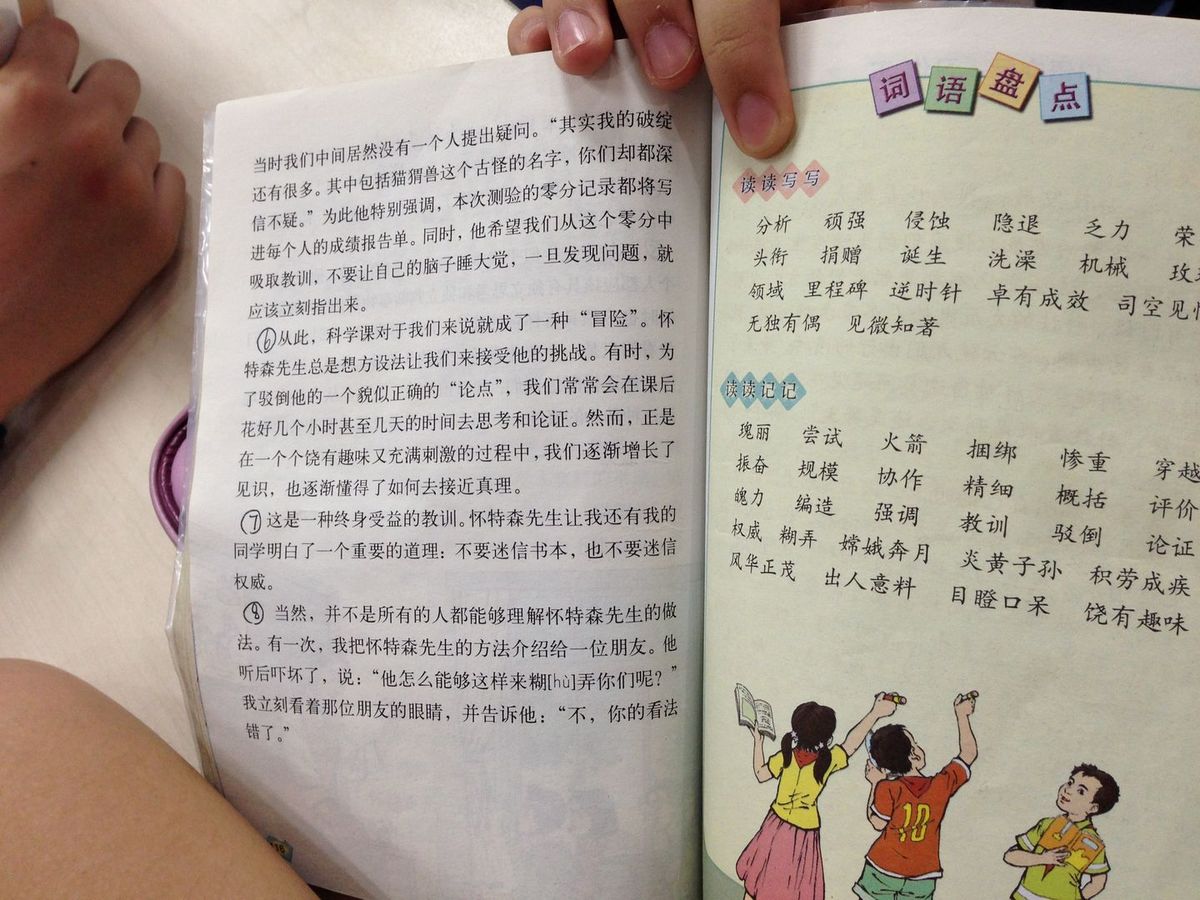 当时我们中间居然没有一个人提出疑问。“其实我的破绽
还有很多。其中包括猫猬兽这个古怪的名字，你们却都深
信不疑。”为此他特别强调，本次测验的零分记录都将写
进每个人的成绩报告单。同时，他希望我们从这个零分中
吸取教训，不要让自己的脑子睡大觉，一旦发现问题，就
应该立刻指出来。
⑥从此，科学课对于我们来说就成了一种“冒险”。怀
特森先生总是想方设法让我们来接受他的挑战。有时，为
了驳倒他的一个貌似正确的“论点”，我们常常会在课后
花好几个小时甚至几天的时间去思考和论证。然而，正是
在一个个饶有趣味又充满刺激的过程中，我们逐渐增长了
见识，也逐渐懂得了如何去接近真理。
⑦这是一种终身受益的教训。怀特森先生让我还有我的
同学明白了一个重要的道理：不要迷信书本，也不要迷信
权威。
⑧当然，并不是所有的人都能够理解怀特森先生的做
法。有一次，我把怀特森先生的方法介绍给一位朋友。他
听后吓坏了，说：“他怎么能够这样来糊[hù]弄你们呢？”
我立刻看着那位朋友的眼睛，并告诉他：“不，你的看法
错了。”
词语盘点
读读写写
分析 顽强 侵蚀 隐退 乏力 荣
头衔 捐赠 诞生 洗澡 机械 玫
领域 里程碑 逆时针 卓有成效 司空见
无独有偶 见微知著
读读记记
瑰丽 尝试 火箭 捆绑 惨重 穿越
振奋 规模 协作 精细 概括 评价
魄力 编造 强调 教训 驳倒 论证
权威 糊弄 嫦娥奔月 炎黄子孙 积劳成疾
风华正茂 出人意料 目瞪口呆 饶有趣味
10